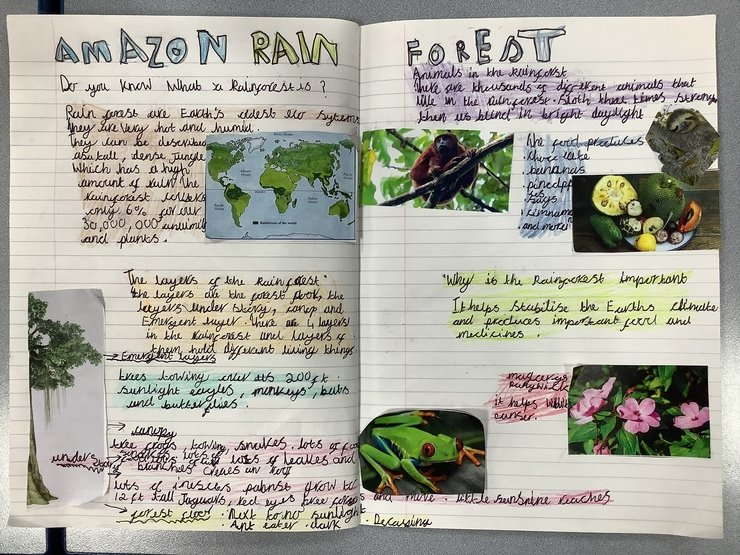 AMAZON RAIN FOREST
Do you know What a Rainforest is ?
Rain forest are Earth's oldest eco systems
They are very hot and humid.
They can be described
as a tall, dense Jungle
Which has a high
amount of rain. The
Rainforest
only 6% for our
30,000,000 animals
and plants.
Rainforests of the world
"The layers of the Rainforest"
the layers are the forest floor, the
layers under story, canop and
Emergent layer. There are 4 layers
in the rainforest and layers of
them hold different living things.
Emergent layers
trees towing over ats 200ft
Sunlight eagles, monkeys, bats
and butterflies.
canopy
tree frogs, snakes. lots of
lots of leafes and
branches creaes un roof
under story
lots of insects grow to
12ft tall Jaguars, red eyes tree frogs
and more. little sunshine reaches
forest floor. Next to no sunlight
Ant eater. dark.
Animals in the rainforest
There are thousands of different animals that
live in the rainforest. Sloth three times strong
then us blind in bright daylight
The food produces
there like
bananas
figs
and more
"Why is the Rainforest important
It helps stabilise the Earths climate
and produces important food and
medicines.
it helps
cancer.